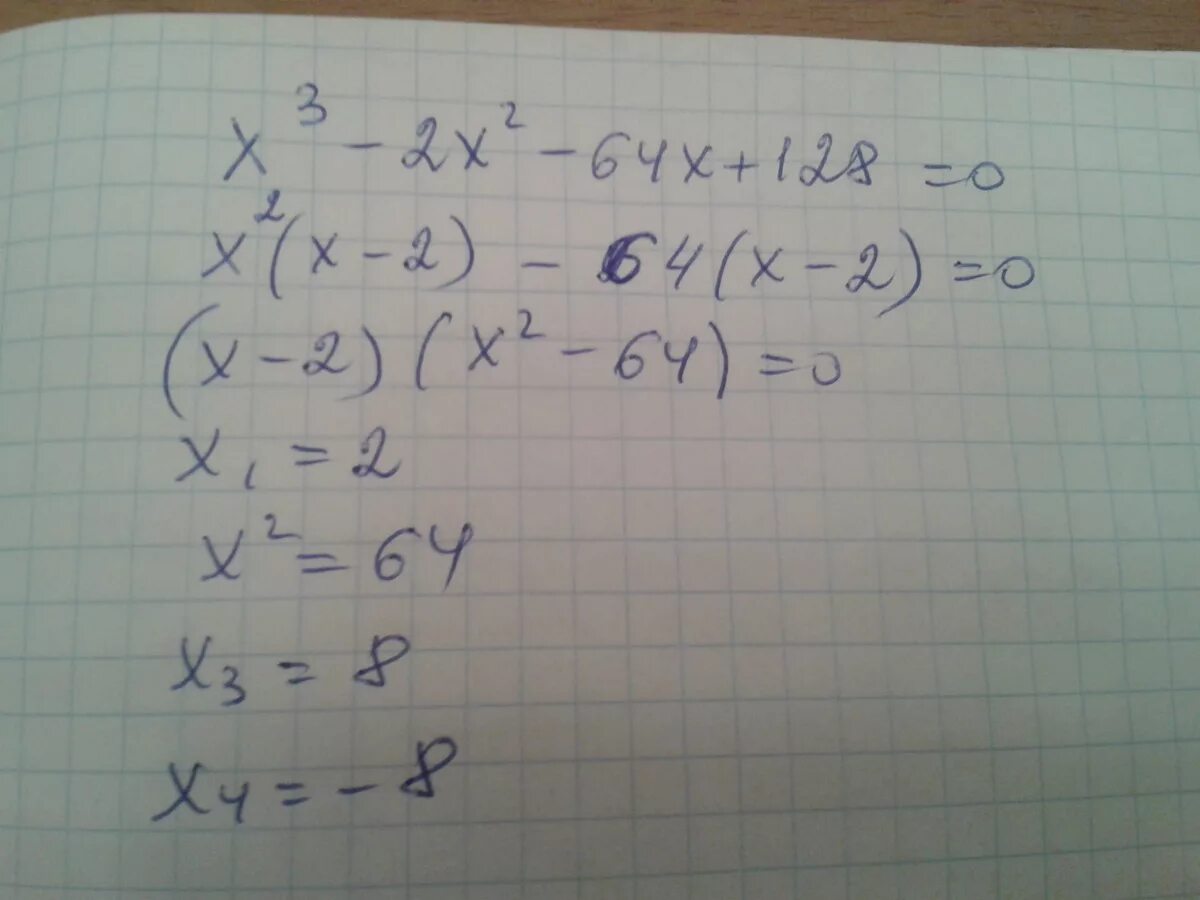 x³ - 2x² - 64x + 128 = 0
x²(x - 2) - 64(x - 2) = 0
(x - 2)(x² - 64) = 0
x₁ = 2
x² = 64
x₃ = 8
x₄ = -8